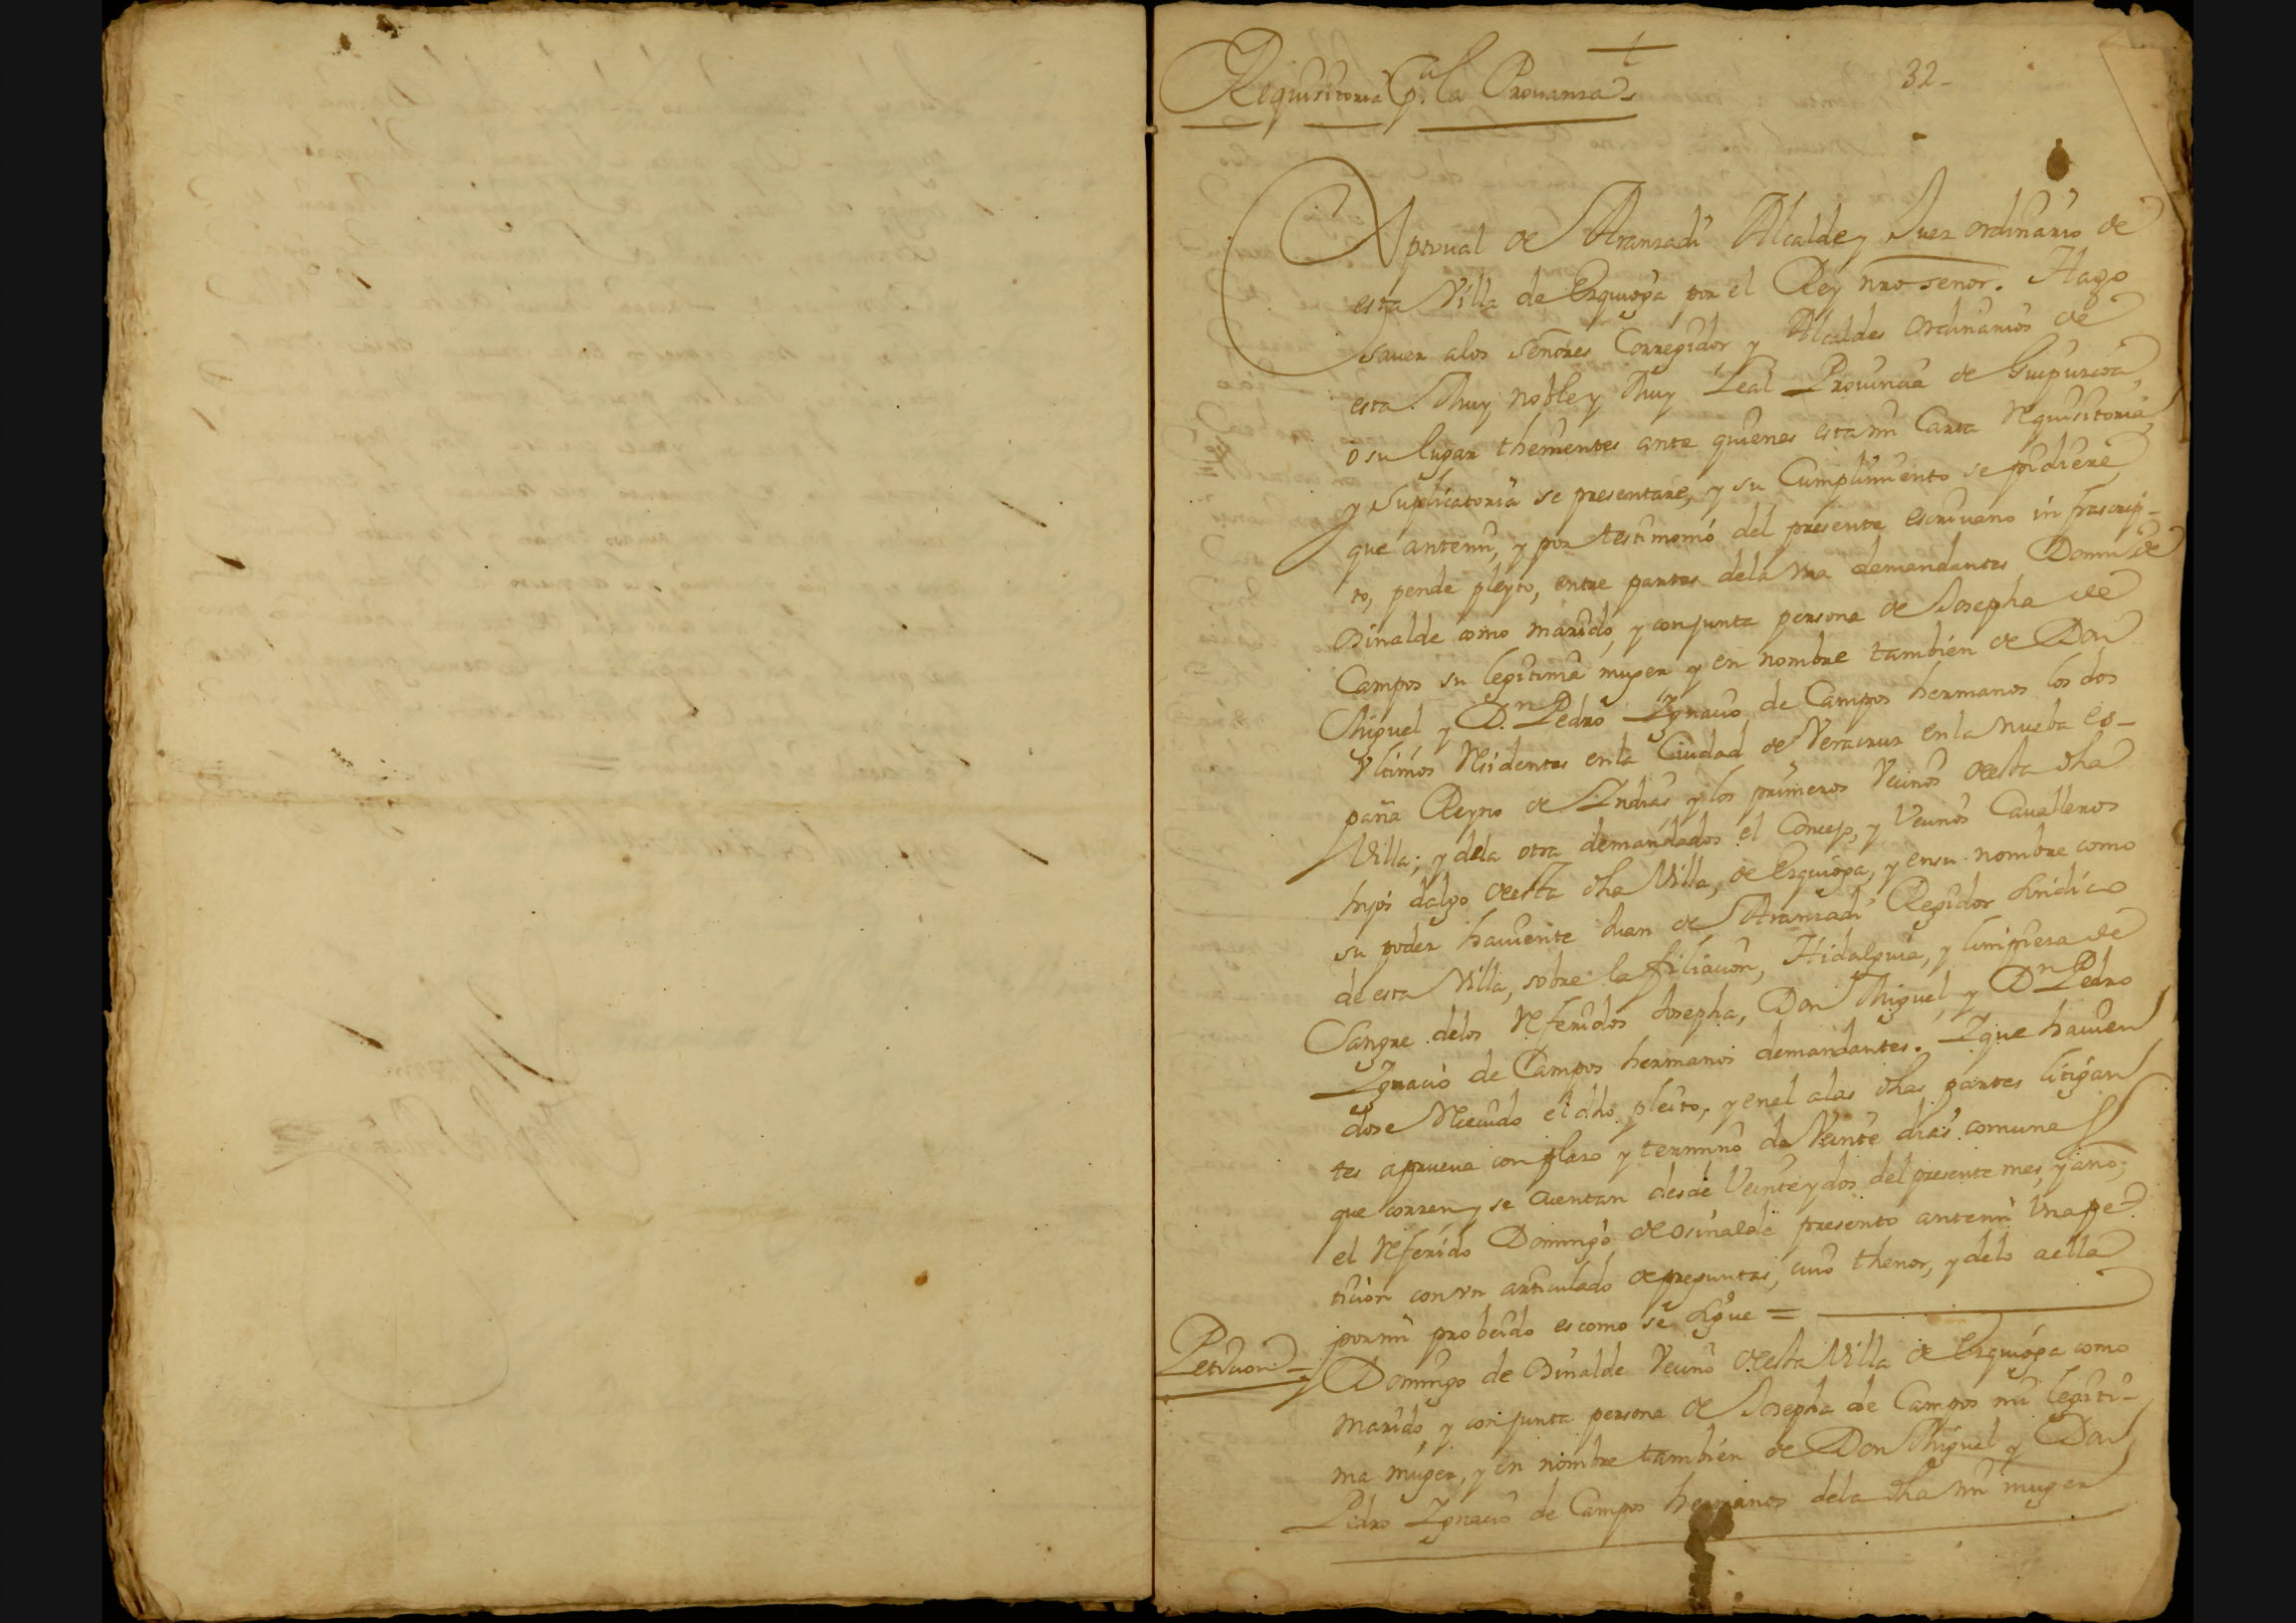 +
Requisitoria pª. la Provanza
32-
Aptoual de Aranzadi Alcalde y Juez ordinario de
esta Villa de Ezquioga por el Rey nro señor. Hago
saver alos señores Corregidor y Alcaldes ordinarios de
esta Muy noble y Muy Leal Provincia de Guipuzcoa
o su lugar thenientes ante quienes esta mi Carta requisitoria
y suplicatoria se presentare, y su Cumplimiento se pidiere
que antemi, y por testimonio del presente escrivano infrascrip-
to, pende pleyto, entre partes dela Vna demandantes Domin de
Osinalde como marido, y conjunta persona de Josepha de
Campos su legitima muger y en nombre tambien de Don
Miguel y D.n Pedro Ygnacio de Campos hermanos los dos
Vltimos residentes enla Ciudad de Veracruz enla nueba es-
paña Reyno de Yndias y los primeros Vecinos desta dha
Villa; y dela otra demandados el Concejo, y Vecinos Cavalleros
hijos dalgo desta dha Villa, de Ezquioga, y ensu nombre como
su poder haviente Juan de Aranzadi Regidor Sindico
de esta Villa, sobre la filiacion, Hidalguia, y limpieza de
Sangre delos referidos Josepha, Don Miguel, y Dn Pedro
Ygnacio de Campos hermanos demandantes. Y que havien
dose recivido el dho pleito, y enel alas dhas partes litigan
tes aprueva con plazo y termino de Veinte dias comunes
que corren y se cuentan desde Veinte y dos del presente mes, y año;
el referido Domingo de Osinalde presento antemi Vna pe
ticion con vn articulado de preguntas, cuio thenor, y delo aella
por mi probeido es como se sigue =
Peticion
Domingo de Osinalde Vecino desta Villa de Ezquioga como
marido, y conjunta persona de Josepha de Campos mi legiti-
ma muger, y en nombre tambien de Don Miguel y Don
Pedro Ygnacio de Campos hermanos dela dha mi muger